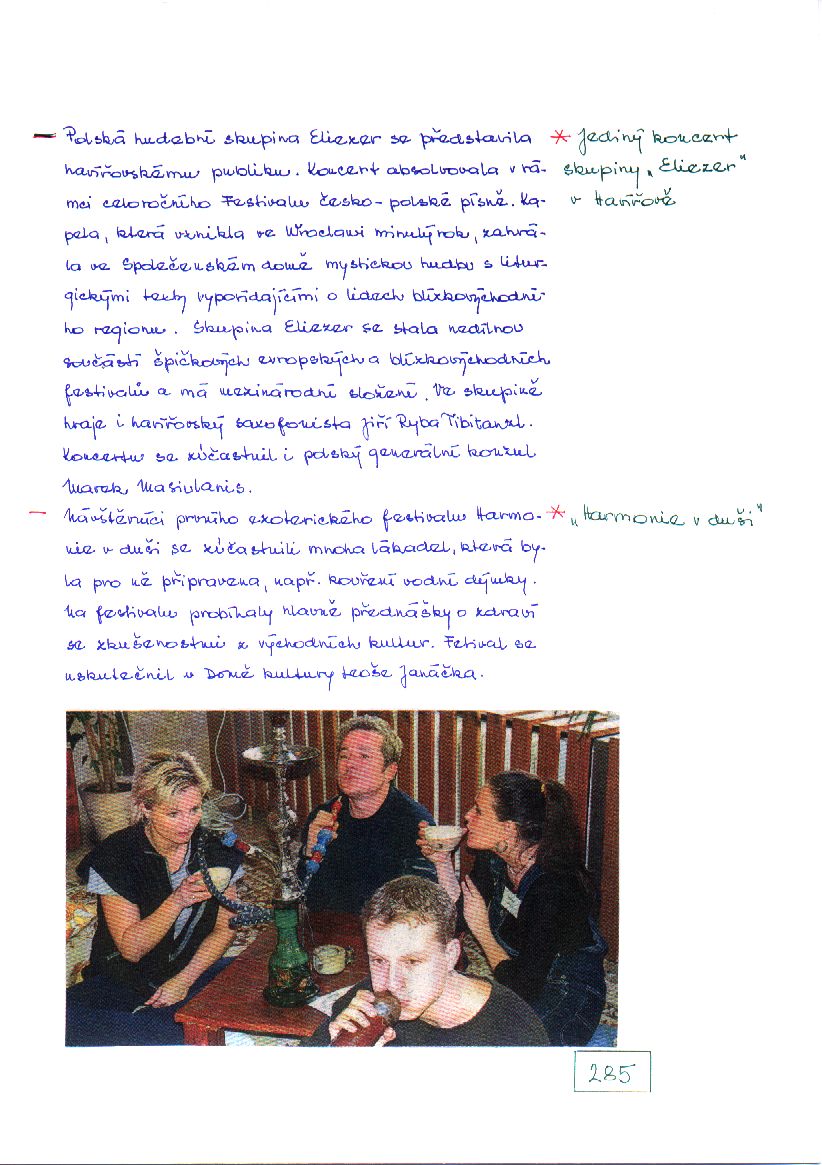 — Polská hudební skupina Eliezer se představila
havířovskému publiku. Koncert absolvovala v rá-
mci celoročního Festivalu česko-polské písně. Ka-
pela, která vznikla ve Wroclawi minulý rok, zahrá-
la ve Společenském domě mystickou hudbu s litur-
gickými texty vypovídajícími o lidech blízkovýchodní-
ho regionu. Skupina Eliezer se stala nedílnou
součástí špičkových evropských a blízkovýchodních
festivalů a má mezinárodní složení. Ve skupině
hraje i havířovský saxofonista Jiří Ryba Tibitanzl.
Koncertu se zúčastnil i polský generální konzul
Marek Masiulanis.
* Jediný koncert
skupiny „Eliezer“
v Havířově
— Návštěvníci prvního exoterického festivalu Harmo-
nie v duši se zúčastnili mnoha lákadel, která by-
la pro ně připravena, např. kouření vodní dýmky.
Na festivalu probíhaly hlavně přednášky o zdraví
se zkušenostmi z východních kultur. Fetival se
uskutečnil v Domě kultury Leoše Janáčka.
* „Harmonie v duši“
285